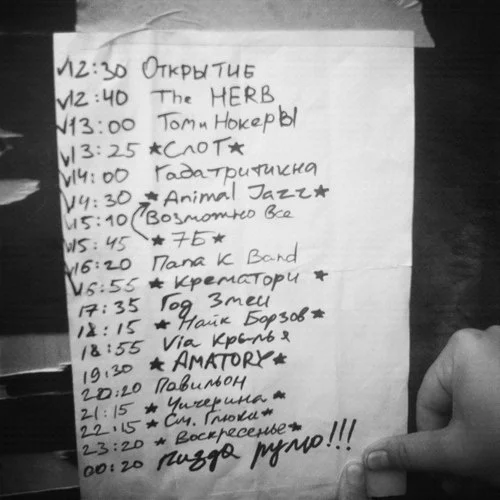 √12:30 ОТКРЫТИЕ
√12:40 The HERB
√13:00 ТомиНокерЫ
√13:25 ★СлоТ★
√14:00 Гадатритикна
√14:30 ★Animal Jazz★
√15:10 Возможно все
√15:45 ★7Б★
√16:20 Папа К Band
√16:55 ★Крематори★
17:35 Год Змеи
18:15 ★Найк Борзов★
18:55 Via Крылья
19:30 ★AMATORY★
20:20 Павильон
21:15 ★Чичерина★
22:15 ★См. Глюка★
23:20 ★Воскресенье★
00:20 пизда рулю!!!